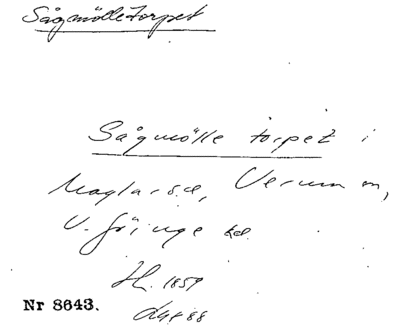 Sågmölletorpet
Sågmölle torpet i
Maglaröd, Verum sn,
V. Göinge hd.
Hl. 1859
Nr 8643.